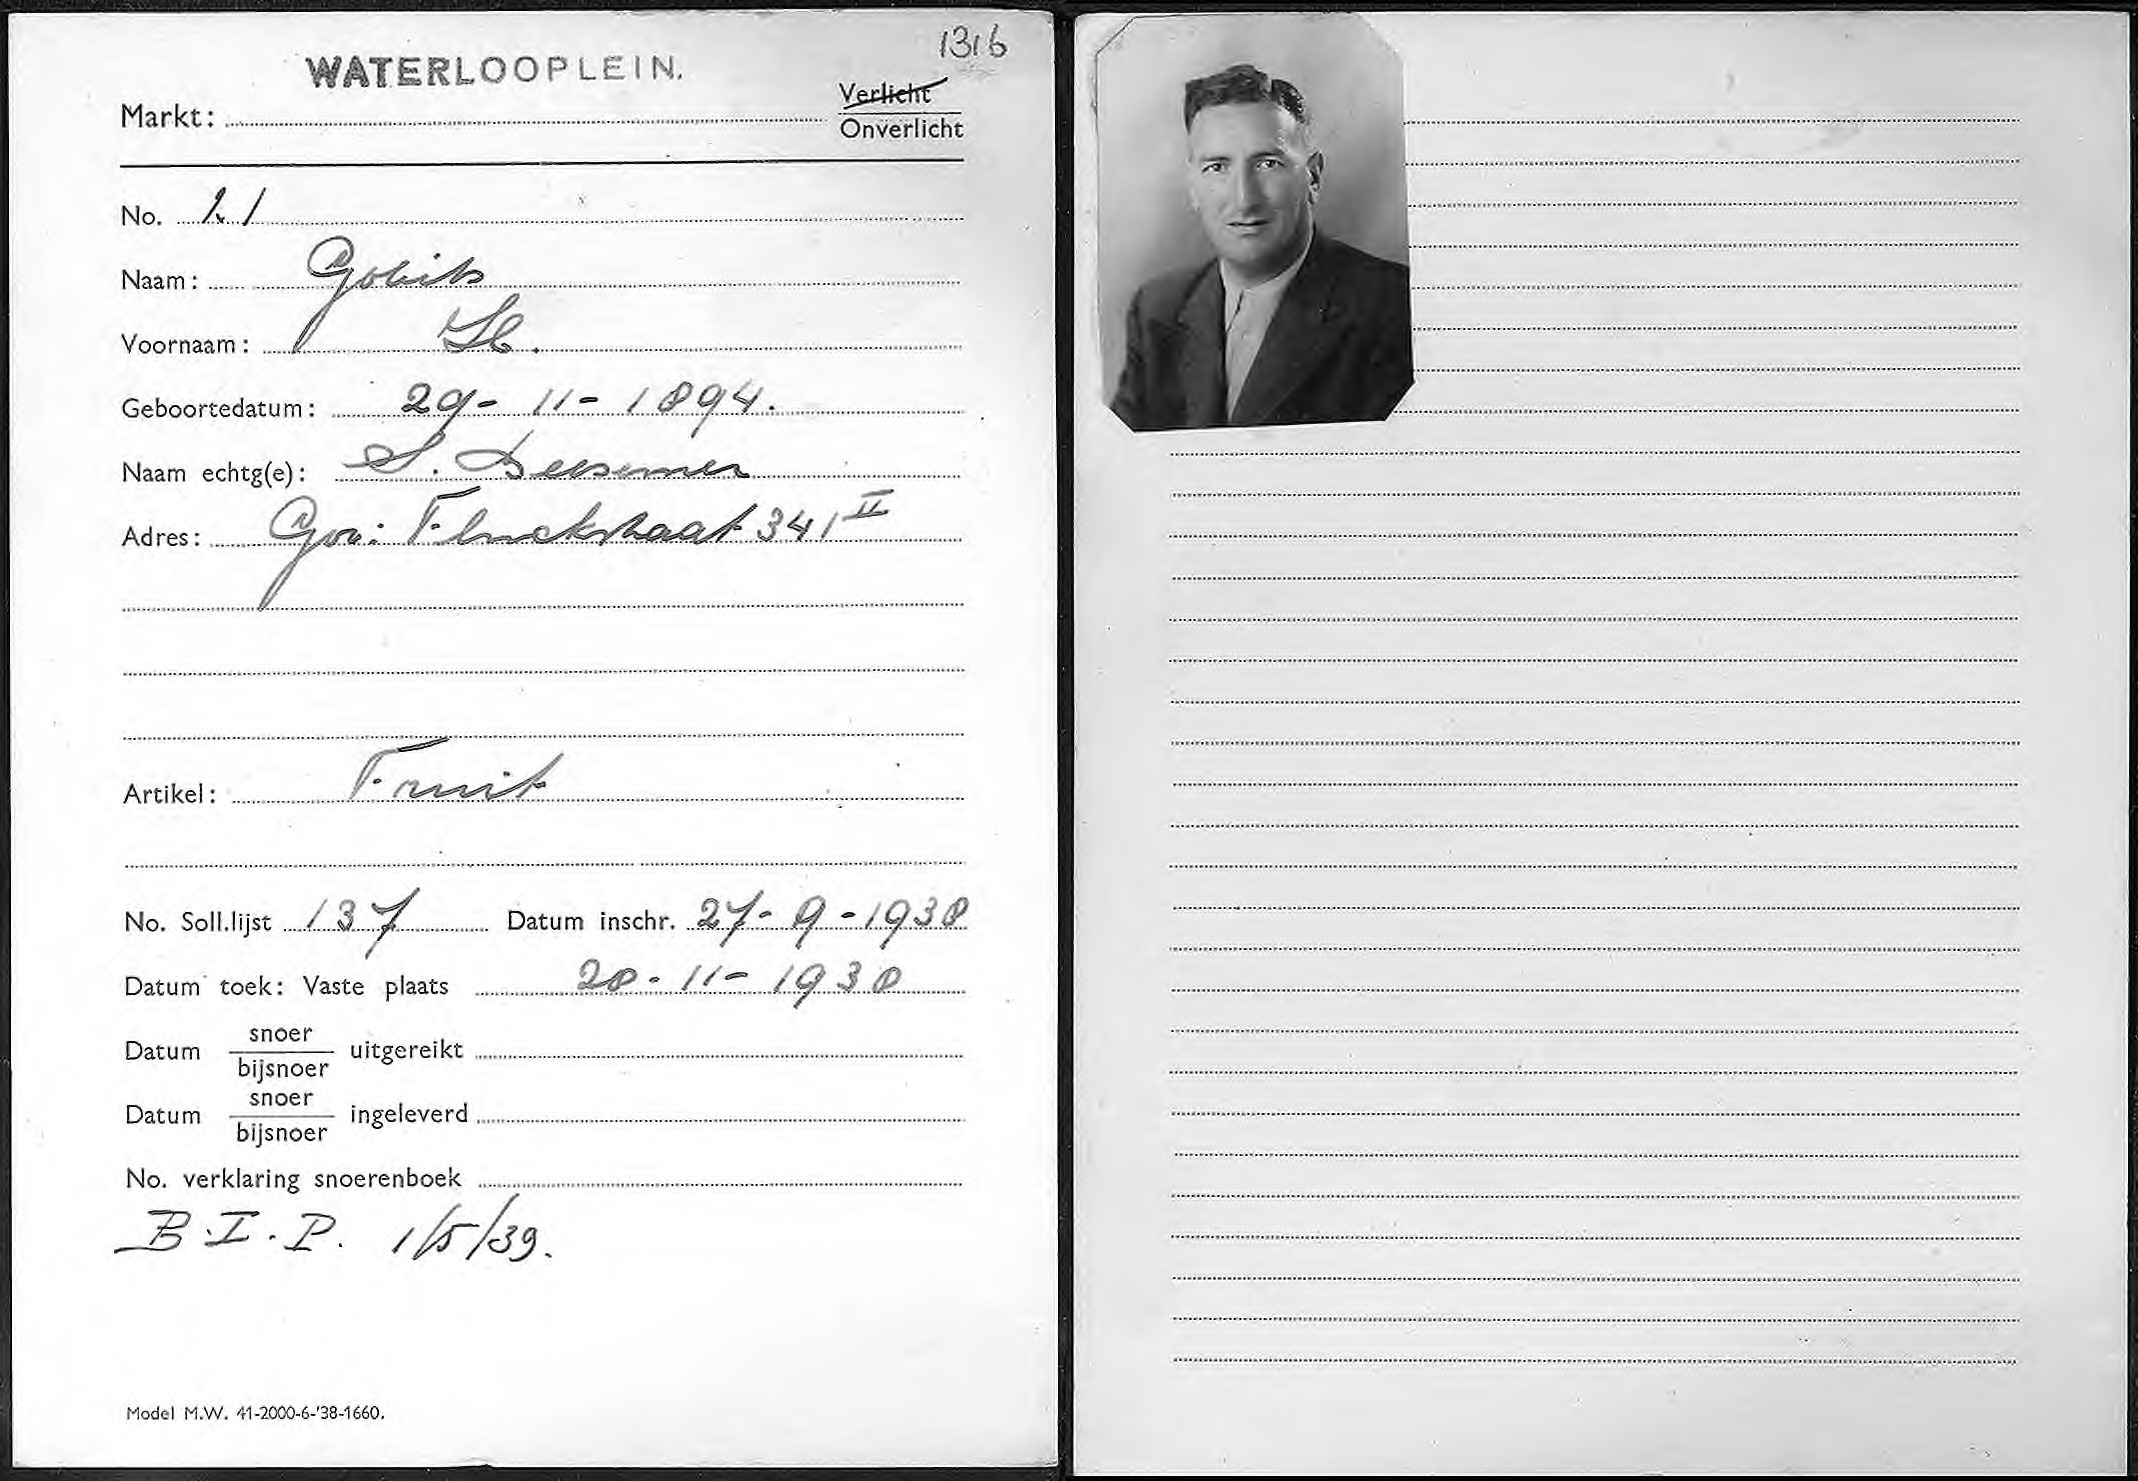 1316
WATERLOOPLEIN.
Markt: Verlicht
Onverlicht
No. 21
Naam: Gobits
Voornaam: H.
Geboortedatum: 29-11-1894.
Naam echtg(e): S. Deesemer
Adres: Gov: Flinckstraat 341 II
Artikel: Fruit
No. Soll.lijst 137 Datum inschr. 27-9-1938
Datum toek: Vaste plaats 28-11-1938
Datum snoer/bijsnoer uitgereikt
Datum snoer/bijsnoer ingeleverd
No. verklaring snoerenboek
B.I.P. 1/5/39.
Model M.W. 41-2000-6-'38-1660.